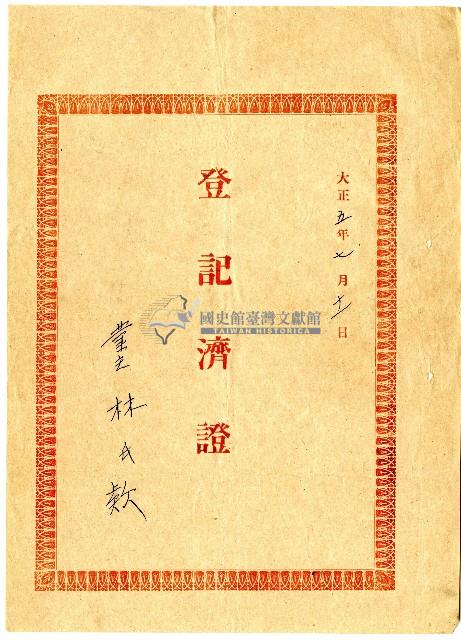 大正五年七月十一日
登記濟證
業主林氏款
國史館臺灣文獻館
TAIWAN HISTORICA